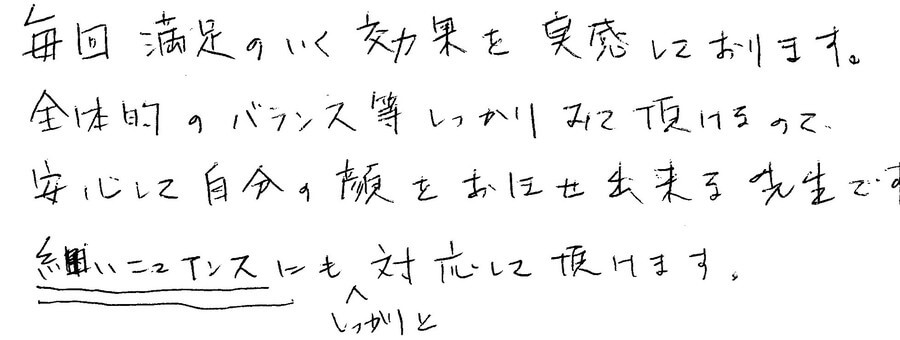 毎回 満足のいく 効果を 実感しております。
全体的のバランス等 しっかり みて 頂けるので、
安心して 自分の 顔を お任せ出来る 先生です
細いニュアンスにも 対応して 頂けます。
しっかりと